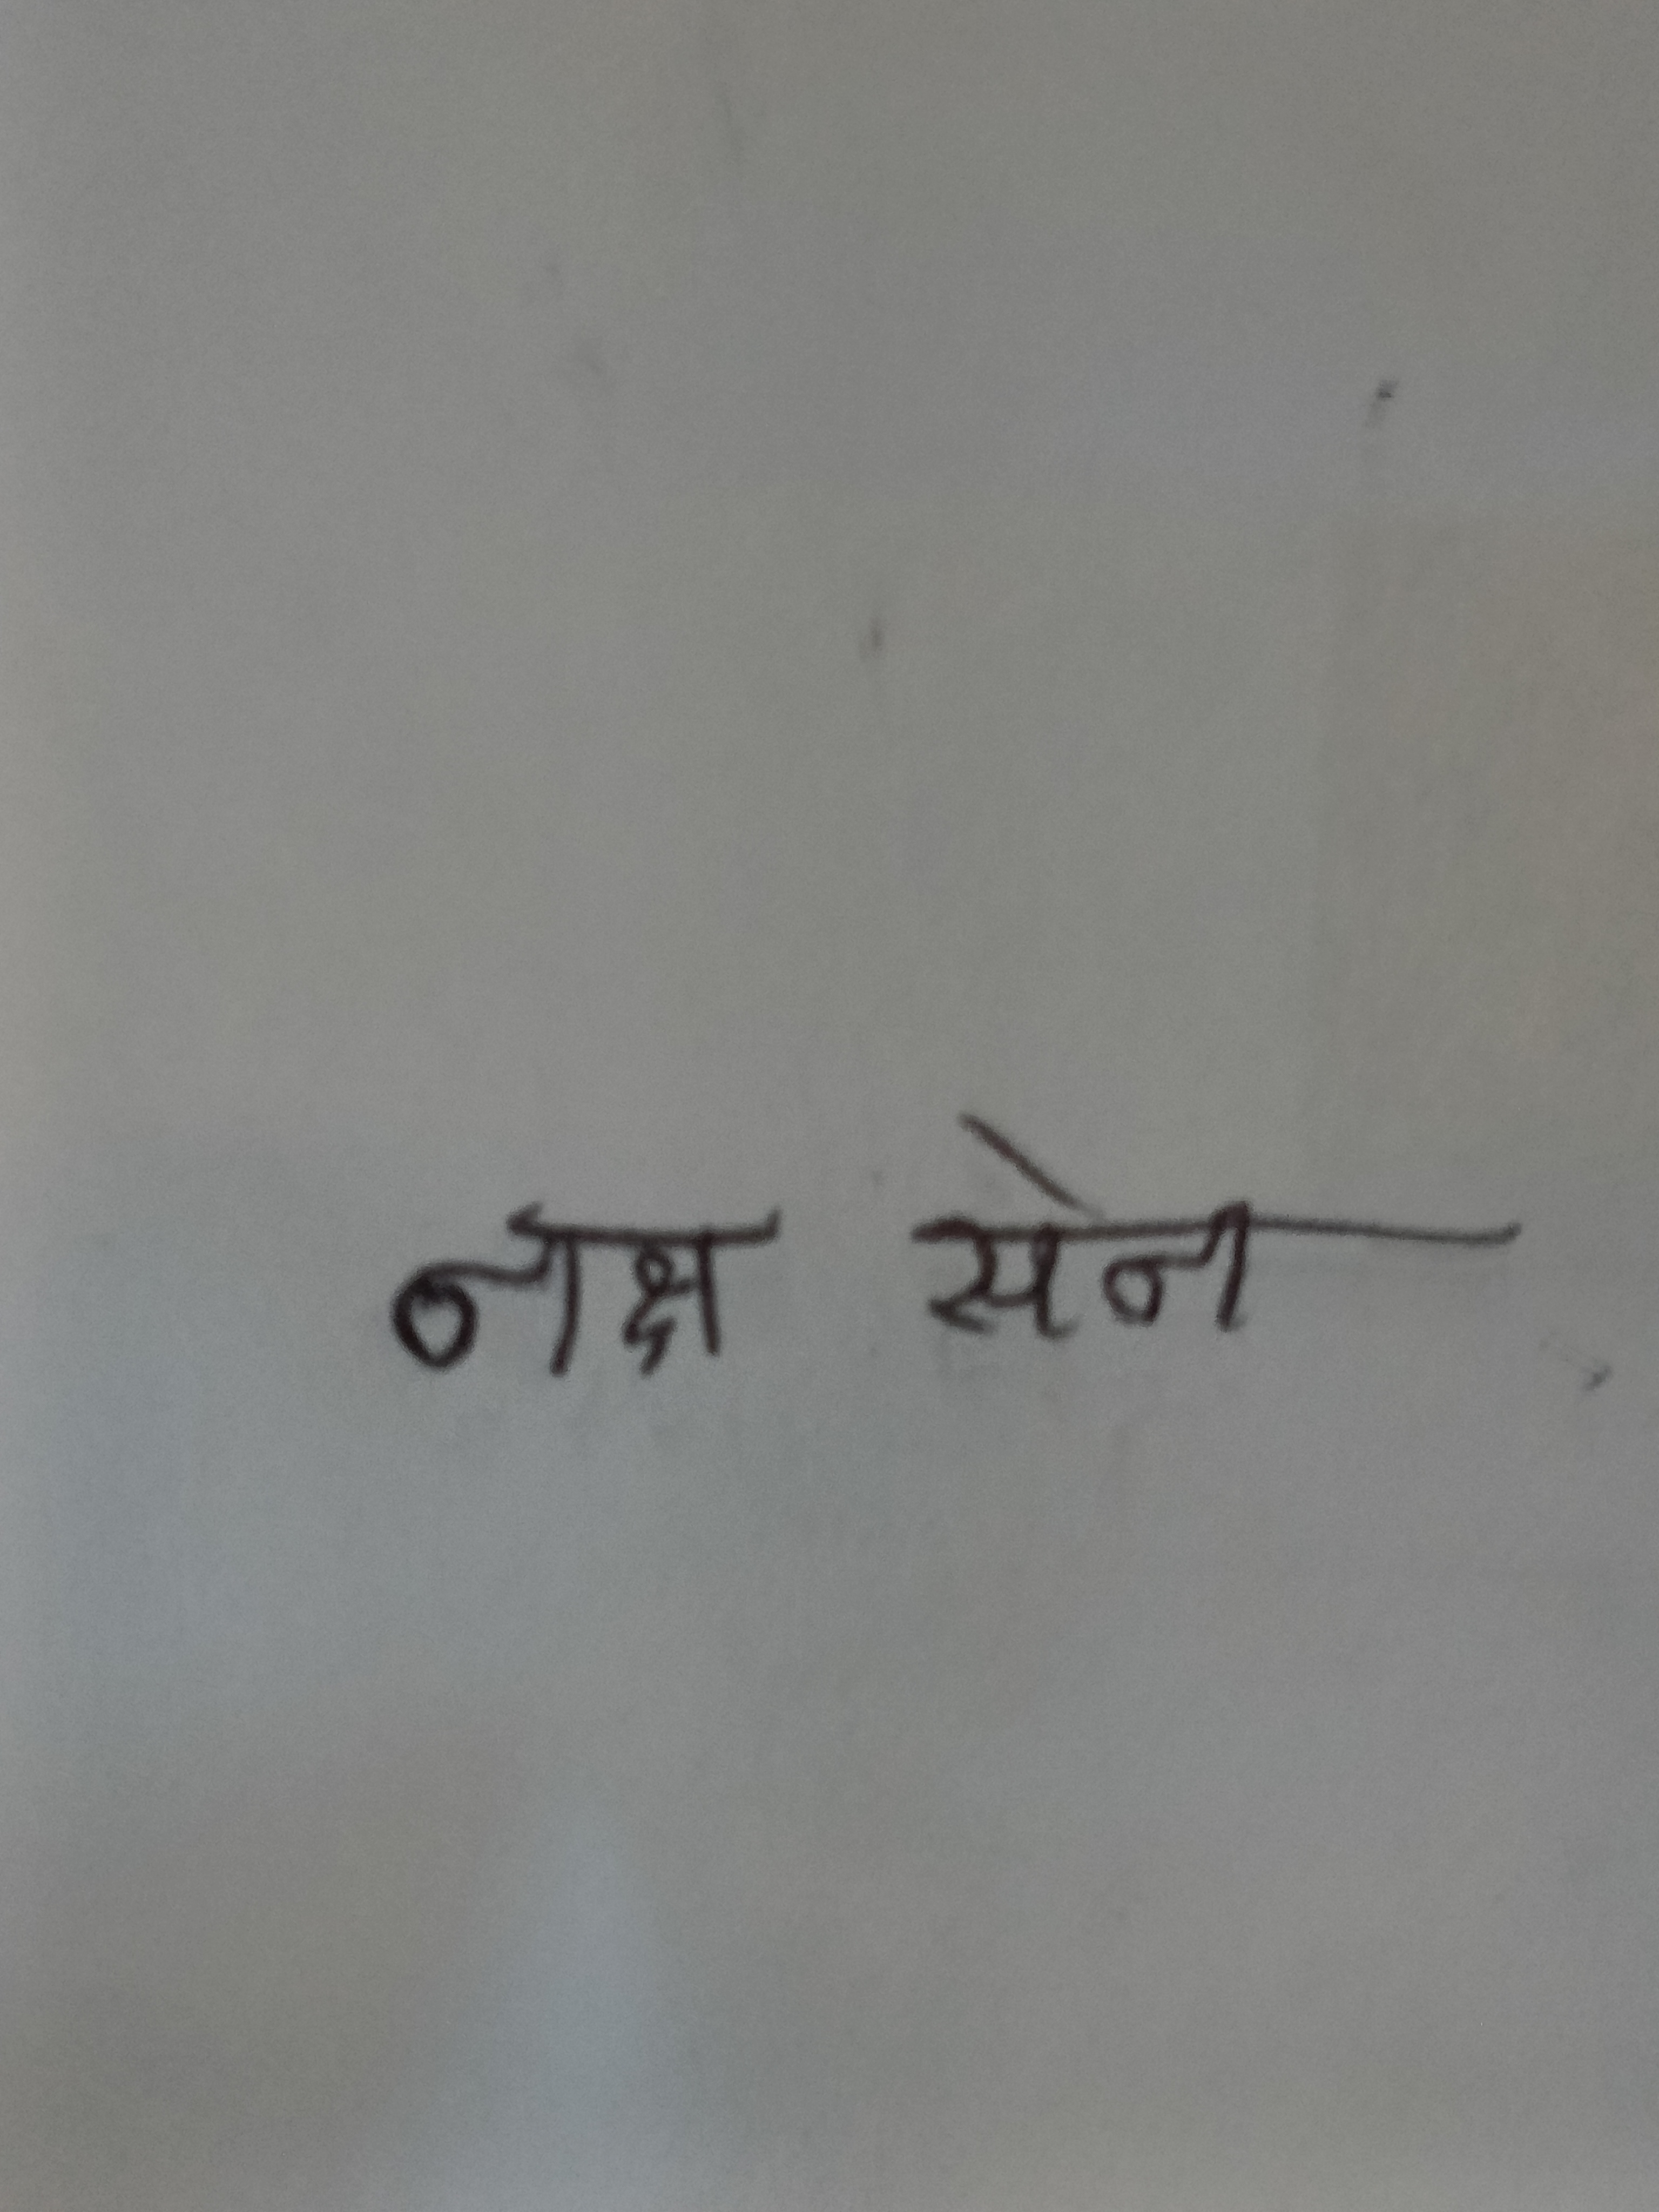 नक्ष सेन